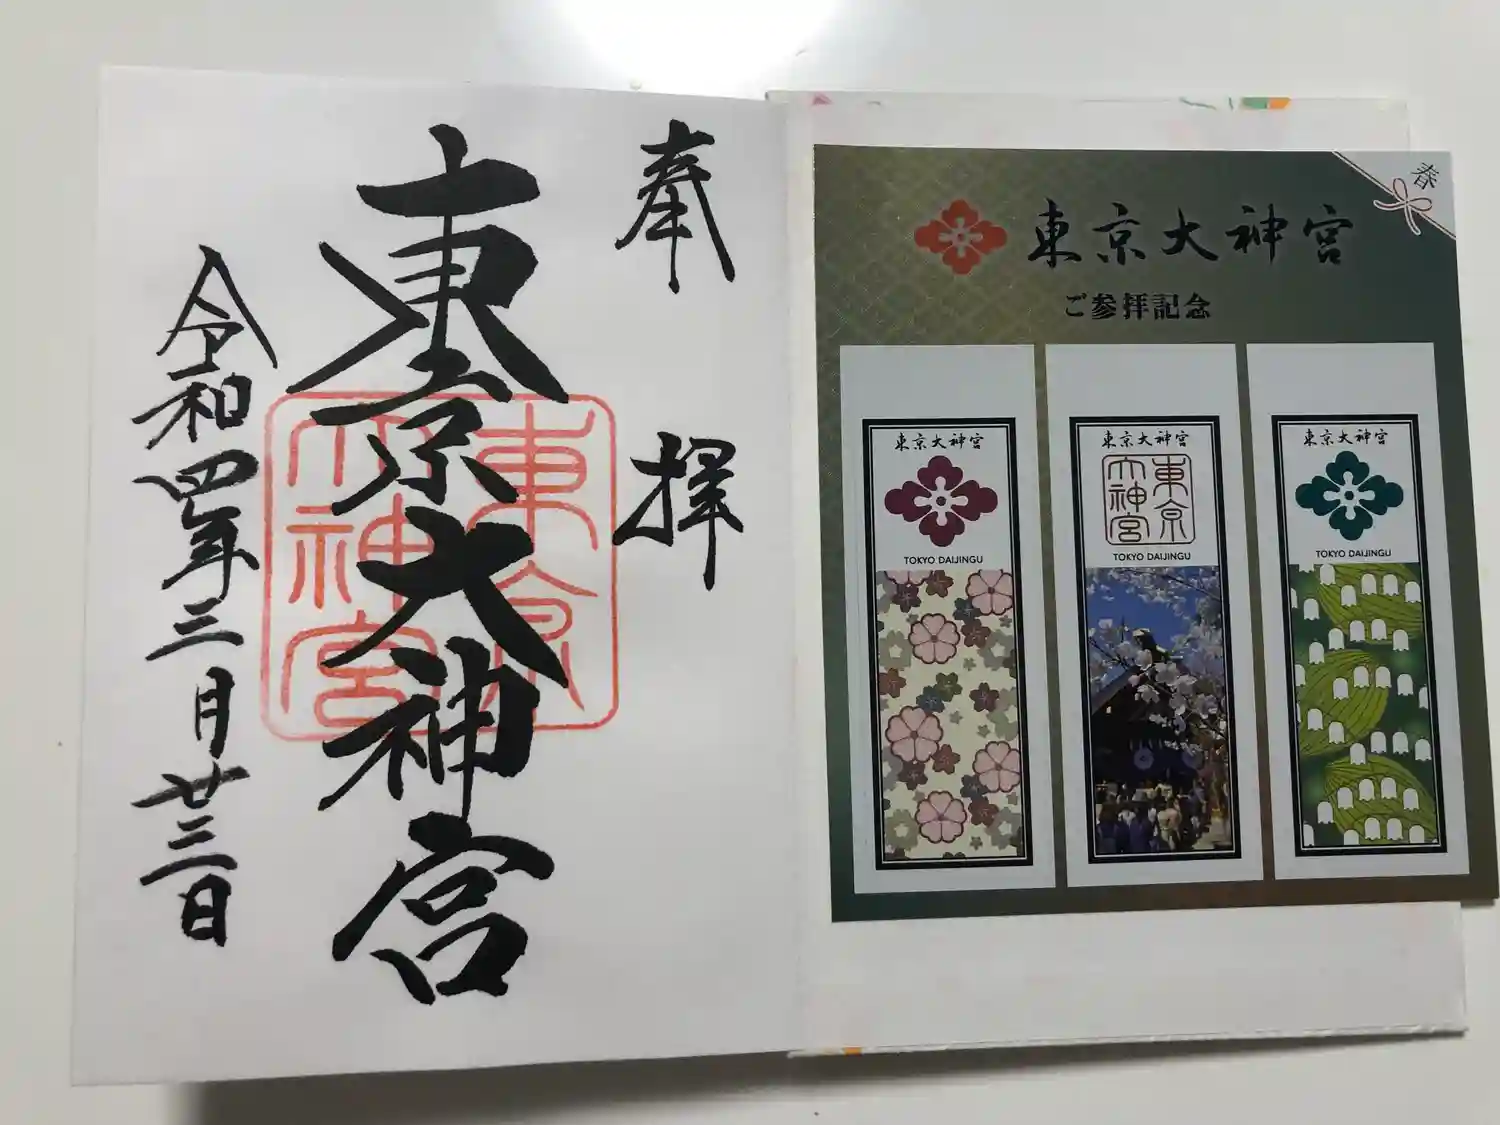 奉拝
東京大神宮
東京
大神宮
令和四年三月廿三日
春
東京大神宮
ご参拝記念
東京大神宮
TOKYO DAIJINGU
東京大神宮
東京
大神宮
TOKYO DAIJINGU
東京大神宮
TOKYO DAIJINGU